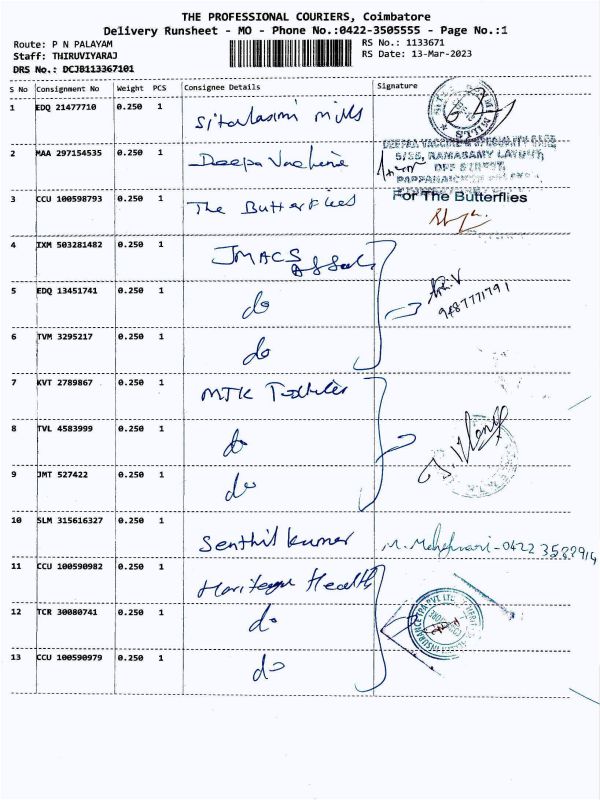 THE PROFESSIONAL COURIERS, Coimbatore
Delivery Runsheet - MO - Phone No.:0422-3505555 - Page No.:1
Route: P N PALAYAM
RS No.: 1133671
Staff: THIRUVIYARAJ
RS Date: 13-Mar-2023
DRS No.: DCJB113367101
S No Consignment No Weight PCS Consignee Details Signature
1 EDQ 21477710 0.250 1 Sitalaxmi mills
2 MAA 297154535 0.250 1 Deepa Vaccine
DEEPAA VACCINE & SPECIALITY
5/55, RAMASAMY LAYOUT,
3 CCU 100598793 0.250 1 The Butterflies For The Butterflies
4 IXM 503281482 0.250 1 JMACS
5 EDQ 13451741 0.250 1 do
9487771791
6 TVM 3295217 0.250 1 do
7 KVT 2789867 0.250 1 MTK Textiles
8 TVL 4583999 0.250 1 do
9 JMT 527422 0.250 1 do
10 SLM 315616327 0.250 1 Senthil kumar M. Maheswari-0422
11 CCU 100590982 0.250 1 Heritage Health
12 TCR 30080741 0.250 1 do
13 CCU 100590979 0.250 1 do